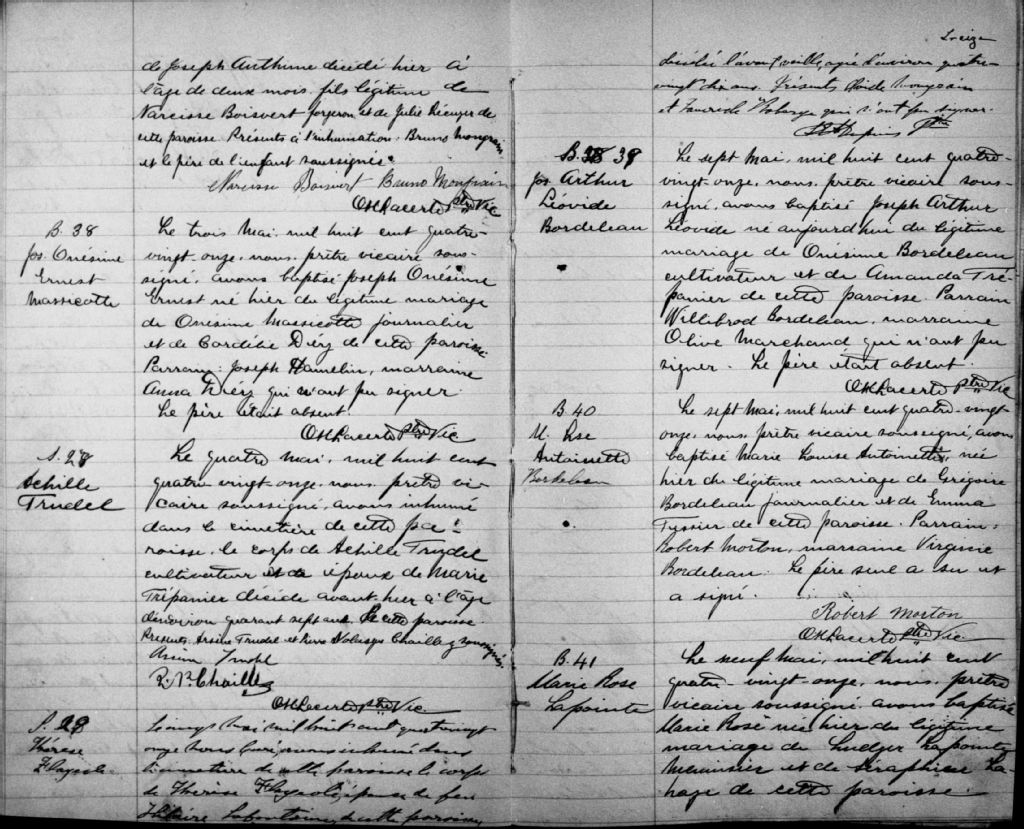 de Joseph Arthime décédé hier à
l'âge de deux mois. fils légitime de
Narcisse Boisvert forgeron et de Julie Lécuyer de
cette paroisse. Présents à l'inhumation: Bruno Mongrain
et le père de l'enfant soussignés.
Narcisse Boisvert Bruno Mongrain
Ptre Vic
B. 38
Jos. Onésime
Ernest
Massicotte
Le trois Mai, mil huit cent quatre-
vingt-onze, nous, prêtre vicaire sous-
signé, avons baptisé Joseph Onésime
Ernest né hier du légitime mariage
de Onésime Massicotte journalier
et de Cordélie Déry de cette paroisse.
Parrain: Joseph Hamelin, marraine
Anna Déry qui n'ont pu signer.
Le père était absent.
Ptre Vic
S. 28
Achille
Trudel
Le quatre mai, mil huit cent
quatre vingt-onze, nous, prêtre vi-
caire soussigné, avons inhumé
dans le cimetière de cette pa-
roisse, le corps de Achille Trudel
cultivateur et de époux de Marie
Trépanier décédé avant hier à l'âge
d'environ quarante sept ans. De cette paroisse.
Présents: Arsène Trudel et Chaillez soussignés
Trudel
Ptre Vic
S. 29
Thérèse
mai mil huit cent quatre vingt
onze nous Curé avons inhumé dans
le cimetière de cette paroisse le corps
de Thérèse épouse de feu
de cette paroisse,
treize
décédée l'avant veille, agée d'environ quatre-
vingt dix ans. Présents Mongrain
et qui n'ont pu signer.
Ptre
B. 38 39
Jos Arthur
Léovide
Bordeleau
Le sept Mai, mil huit cent quatre-
vingt-onze, nous, prêtre vicaire sous-
signé, avons baptisé Joseph Arthur
Léovide né aujourd'hui du légitime
mariage de Onésime Bordeleau
cultivateur et de Amanda Tré-
panier de cette paroisse. Parrain
Willibrod Bordeleau, marraine
Olive Marchand qui n'ont pu
signer. Le père était absent.
Ptre Vic
B. 40
M. Lse
Antoinette
Bordeleau
Le sept Mai, mil huit cent quatre-vingt-
onze, nous, prêtre vicaire soussigné, avons
baptisé Marie Louise Antoinette, née
hier du légitime mariage de Grégoire
Bordeleau journalier et de Emma
Tessier de cette paroisse. Parrain:
Robert Morton, marraine Virginie
Bordeleau. Le père seul a su et
a signé.
Robert Morton
Ptre Vic
B. 41
Marie Rose
Lapointe
Le neuf Mai, mil huit cent
quatre-vingt-onze, nous, prêtre
vicaire soussigné avons baptisé
Marie Rose née hier du légitime
mariage de Ludger Lapointe
Menuisier et de Séraphine La-
hage de cette paroisse.